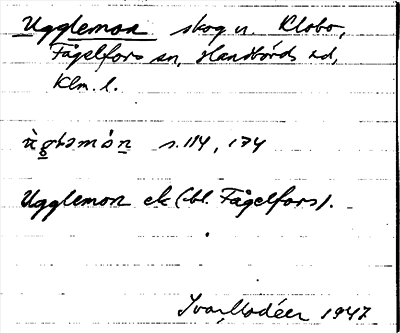 Ugglemon skog u. Klobo,
Fågelfors sn, Handbörds hd,
Klm. l.
s. 114, 134
Ugglemon ek (bl. Fågelfors).
Ivar Modéer 1947